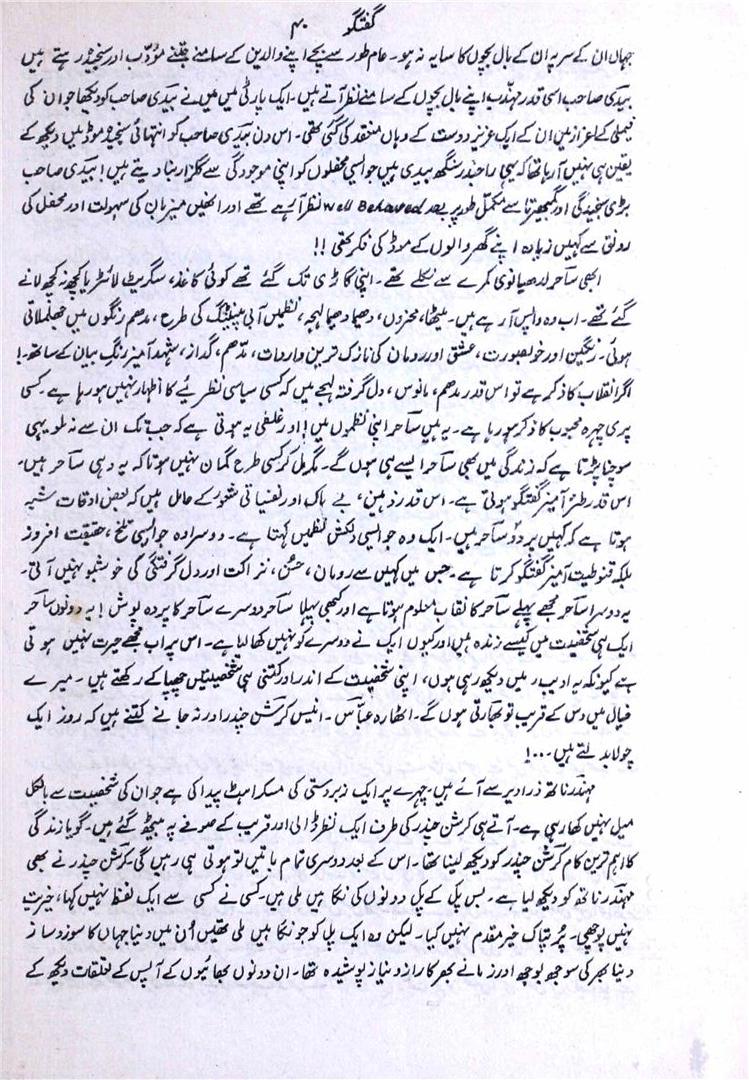 گفتگو ۴۰
جہاں ان کے سر پہ ان کے بال بچوں کا سایہ نہ ہو۔ عام طور سے بچے اپنے والدین کے سامنے جتنے مؤدّب اور سنجیدہ رہتے ہیں
بیدی صاحب اسی قدر مہذّب اپنے بال بچوں کے سامنے نظر آتے ہیں۔ ایک پارٹی میں میں نے بیدی صاحب کو دیکھا جو ان کی
فیملی کے اعزاز میں ان کے ایک عزیز دوست کے وہاں منعقد کی گئی تھی۔ اس دن بیدی صاحب کو انتہائی سنجیدہ موڈ میں دیکھ کے
یقین ہی نہیں آرہا تھا کہ یہی راجندر سنگھ بیدی ہیں جو ایسی محفلوں کو اپنی موجودگی سے گلزار بنا دیتے ہیں! بیدی صاحب
بڑی سنجیدگی اور گمبھیرتا سے مکمل طور پر Well Behaved نظر آرہے تھے اور انھیں میزبان کی سہولت اور محفل کی
رونق سے کہیں زیادہ اپنے گھر والوں کے موڈ کی فکر تھی !!
ابھی ساحر لدھیانوی کمرے سے نکلے تھے۔ اپنی گاڑی تک گئے تھے کوئی کاغذ، سگریٹ لائٹر یا کچھ نہ کچھ لانے
گئے تھے۔ اب وہ واپس آرہے ہیں۔ میٹھا، محزوں، دھیما دھیما لہجہ، نظمیں آبی پینٹنگ کی طرح، مدھم رنگوں میں جھلملاتی
ہوئی۔ رنگین اور خوبصورت، عشق اور رومان کی نازک ترین واردات، مدھم، گداز، شہد آمیز رنگِ بیان کے ساتھ۔!
اگر انقلاب کا ذکر ہے تو اس قدر مدھم، مانوس، دل گرفتہ لہجے میں کہ کسی سیاسی نظریئے کا اظہار نہیں ہو رہا ہے۔ کسی
پری چہرہ محبوب کا ذکر ہو رہا ہے۔ یہ ہیں ساحر اپنی نظموں میں! اور غلطی یہ ہوتی ہے کہ جب تک ان سے نہ ملو یہی
سوچنا پڑتا ہے کہ زندگی میں بھی ساحر ایسے ہی ہوں گے۔ مگر مل کر کسی طرح گمان نہیں ہوتا کہ یہ وہی ساحر ہیں۔
اس قدر طنز آمیز گفتگو ہوتی ہے۔ اس قدر ذہین، بے باک اور نفسیاتی شعور کے حامل ہیں کہ بعض اوقات شبہ
ہوتا ہے کہ کہیں یہ دو ساحر ہیں۔ ایک وہ جو ایسی دلکش نظمیں کہتا ہے۔ دوسرا وہ جو ایسی تلخ، حقیقت افروز
بلکہ قنوطیت آمیز گفتگو کرتا ہے۔ جس میں کہیں سے رومان، حُسن، نزاکت اور دل گرفتگی کی خوشبو نہیں آتی۔
یہ دوسرا ساحر مجھے پہلے ساحر کا نقاب معلوم ہوتا ہے اور کبھی پہلا ساحر دوسرے ساحر کا پردہ پوش! یہ دونوں ساحر
ایک ہی شخصیت میں کیسے زندہ ہیں اور کیوں ایک نے دوسرے کو نہیں کھا لیا ہے۔ اس پر اب مجھے حیرت نہیں ہوتی
ہے کیونکہ یہ ادیب، میں دیکھ رہی ہوں، اپنی شخصیت کے اندر اور کتنی ہی شخصیتیں چھپا کے رکھتے ہیں۔ میرے
خیال میں دس کے قریب تو بھارتی ہوں گے۔ اٹھارہ عباس۔ انیس کرشن چندر اور نہ جانے کتنے ہیں کہ روز ایک
چولا بدلتے ہیں۔۔۔!
مہندر ناتھ ذرا دیر سے آئے ہیں۔ چہرے پر ایک زبردستی کی مسکراہٹ پیدا کی ہے جو ان کی شخصیت سے بالکل
میل نہیں کھا رہی ہے۔ آتے ہی کرشن چندر کی طرف ایک نظر ڈالی اور قریب کے صوفے پہ بیٹھ گئے ہیں۔ گویا زندگی
کا اہم ترین کام کرشن چندر کو دیکھ لینا تھا۔ اس کے بعد دوسری تمام باتیں تو ہوتی ہی رہیں گی۔ کرشن چندر نے بھی
مہندر ناتھ کو دیکھ لیا ہے۔ بس پل کے پل دونوں کی نگاہیں ملی ہیں۔ کسی نے کسی سے ایک لفظ نہیں کہا، خیریت
نہیں پوچھی۔ پُرتپاک خیر مقدم نہیں کیا۔ لیکن وہ ایک پل کو جو نگاہیں ملی تھیں اُن میں دنیا جہاں کا سوز و ساز
دنیا بھر کی سوجھ بوجھ اور زمانے بھر کا راز و نیاز پوشیدہ تھا۔ ان دونوں بھائیوں کے آپس کے تعلقات دیکھ کے